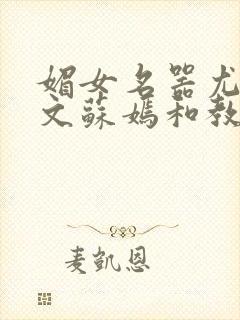 媚女名器尤
文蘇媽和教
麦凱恩